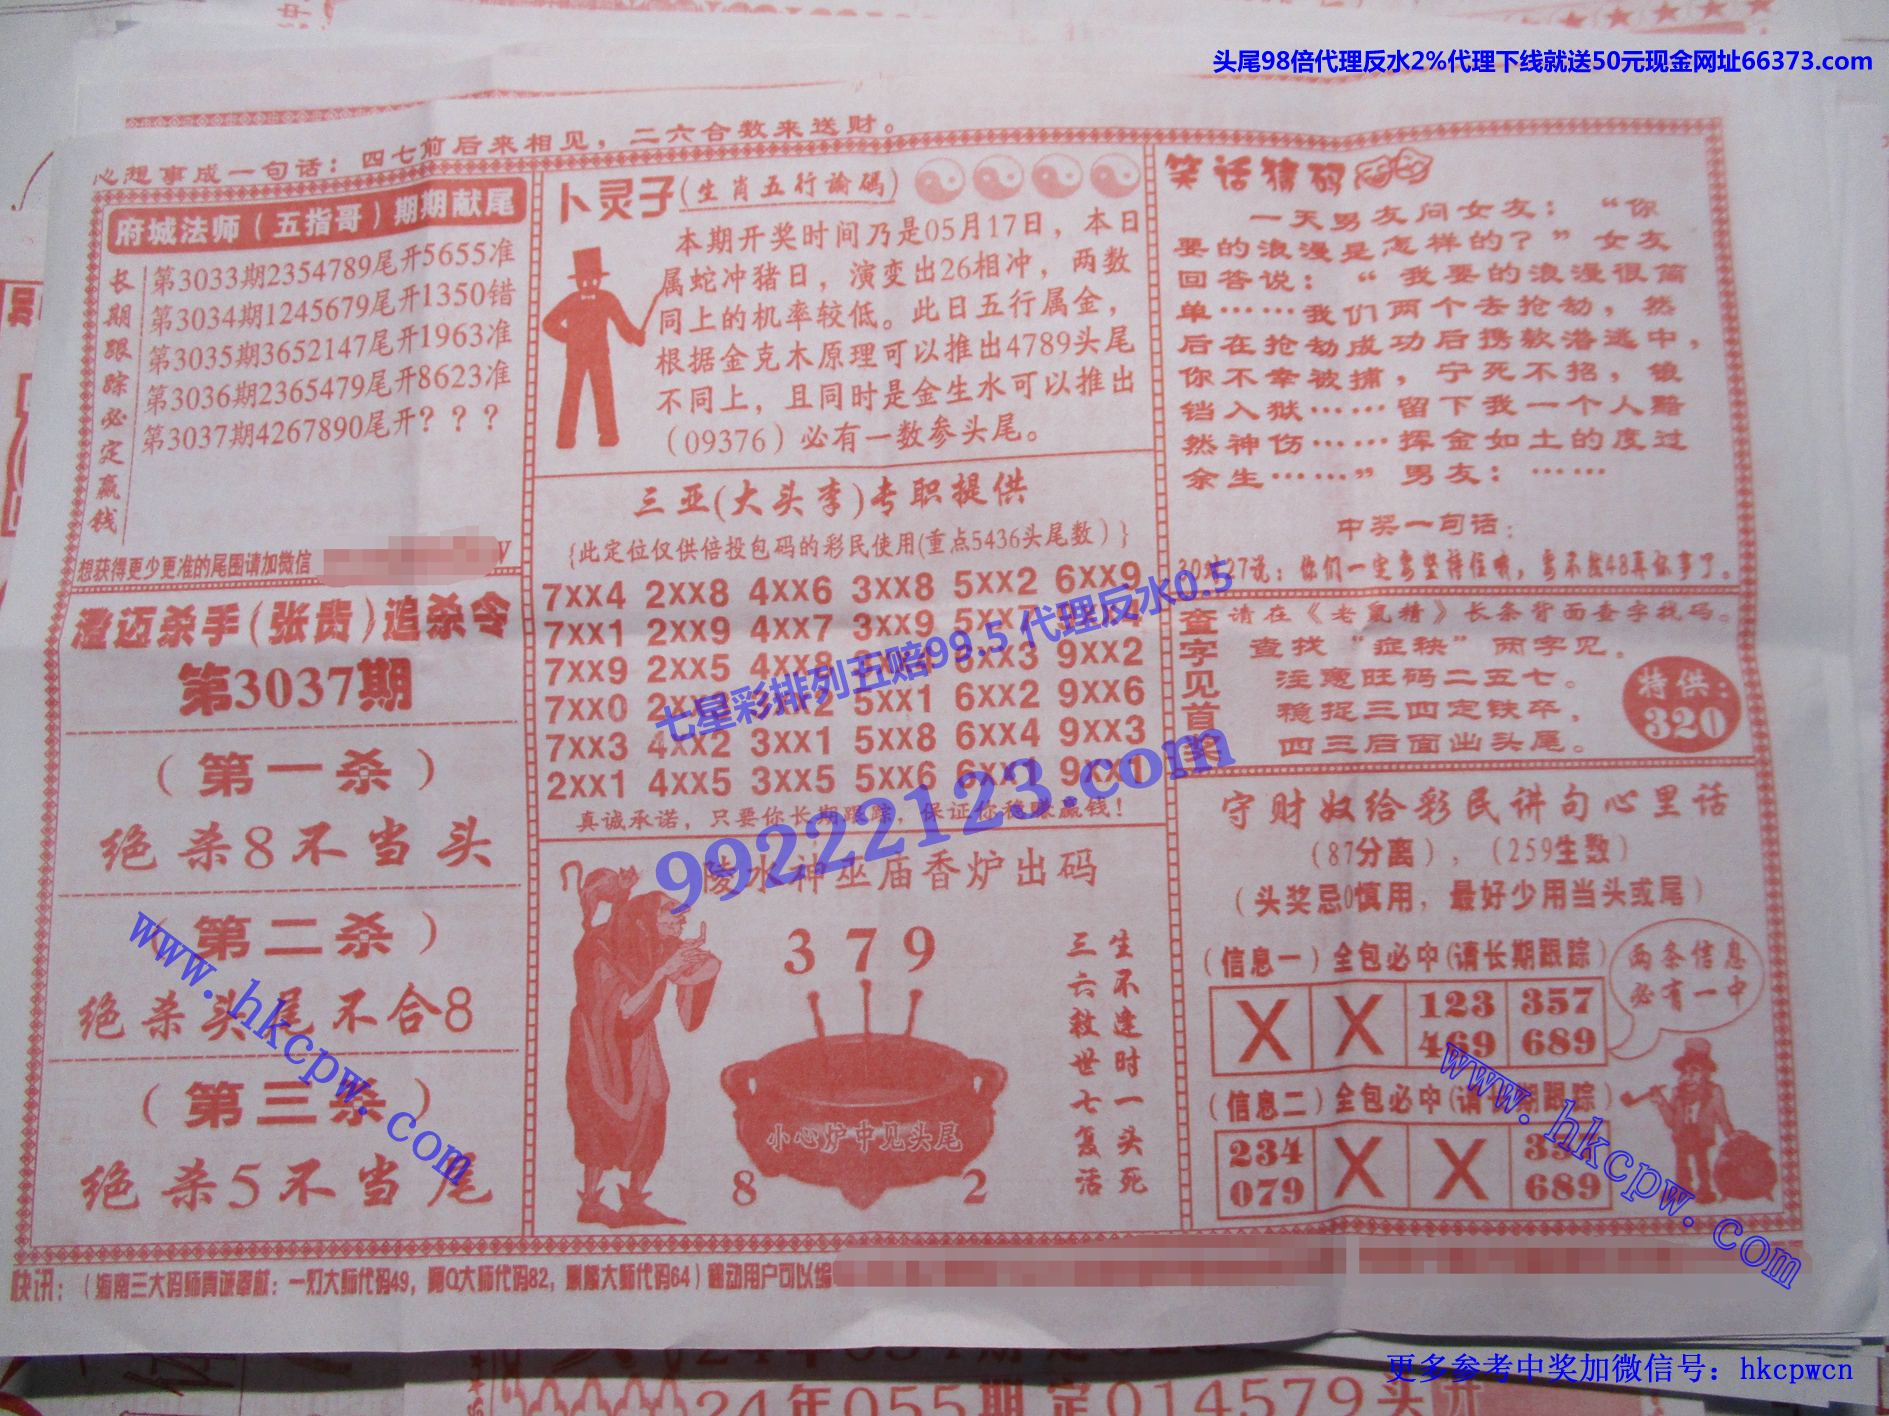 头尾98倍代理反水2%代理下线就送50元现金网址66373.com
心想事成一句话：四七前后来相见，二六合数来送财。
府城法师（五指哥）期期献尾
长期跟踪必定赢钱
第3033期2354789尾开5655准
第3034期1245679尾开1350错
第3035期3652147尾开1963准
第3036期2365479尾开8623准
第3037期4267890尾开？？？
想获得更少更准的尾围请加微信
澄迈杀手(张贵)追杀令
第3037期
（第一杀）
绝杀8不当头
（第二杀）
绝杀头尾不合8
（第三杀）
绝杀5不当尾
卜灵子(生肖五行论码)
本期开奖时间乃是05月17日，本日
属蛇冲猪日，演变出26相冲，两数
同上的机率较低。此日五行属金，
根据金克木原理可以推出4789头尾
不同上，且同时是金生水可以推出
（09376）必有一数参头尾。
三亚(大头李)专职提供
{此定位仅供倍投包码的彩民使用(重点5436头尾数）}
7XX4 2XX8 4XX6 3XX8 5XX2 6XX9
7XX1 2XX9 4XX7 3XX9 5XX7
7XX9 2XX5 4XX8 6XX3 9XX2
7XX0 5XX1 6XX2 9XX6
7XX3 4XX2 3XX1 5XX8 6XX4 9XX3
2XX1 4XX5 3XX5 5XX6 6XX1 9XX1
真诚承诺，只要你长期跟踪，保证你稳赚赢钱！
七星彩排列五赔99.5 代理反水0.5
99222123.com
陵水神巫庙香炉出码
3 7 9
生不逢时一头死
三六救世七复活
小心炉中见头尾
8 2
笑话猜码
一天男友问女友：“你
要的浪漫是怎样的？”女友
回答说：“我要的浪漫很简
单……我们两个去抢劫，然
后在抢劫成功后携款潜逃中，
你不幸被捕，宁死不招，锒
铛入狱……留下我一个人黯
然神伤……挥金如土的度过
余生……”男友：……
中奖一句话：
30对27说：你们一定要坚持住哦，要不然48真似事了。
查字见首奖
请在《老鼠精》长条背面查字找码。
查找“症秧”两字见。
注意旺码二五七。
稳捉三四定铁卒，
四三后面出头尾。
特供：
320
守财奴给彩民讲句心里话
（87分离），（259生数）
（头奖忌0慎用，最好少用当头或尾）
（信息一）全包必中(请长期跟踪）
两条信息
必有一中
X X 123 357
469 689
（信息二）全包必中(请长期跟踪）
234 X X 357
079 689
www.hkcpw.com
www.hkcpw.com
快讯：（海南三大码师真诚奉献：一灯大师代码49，阿Q大师代码82，大师代码64）移动用户可以编
24年055期定014579头开
更多参考中奖加微信号：hkcpwcn